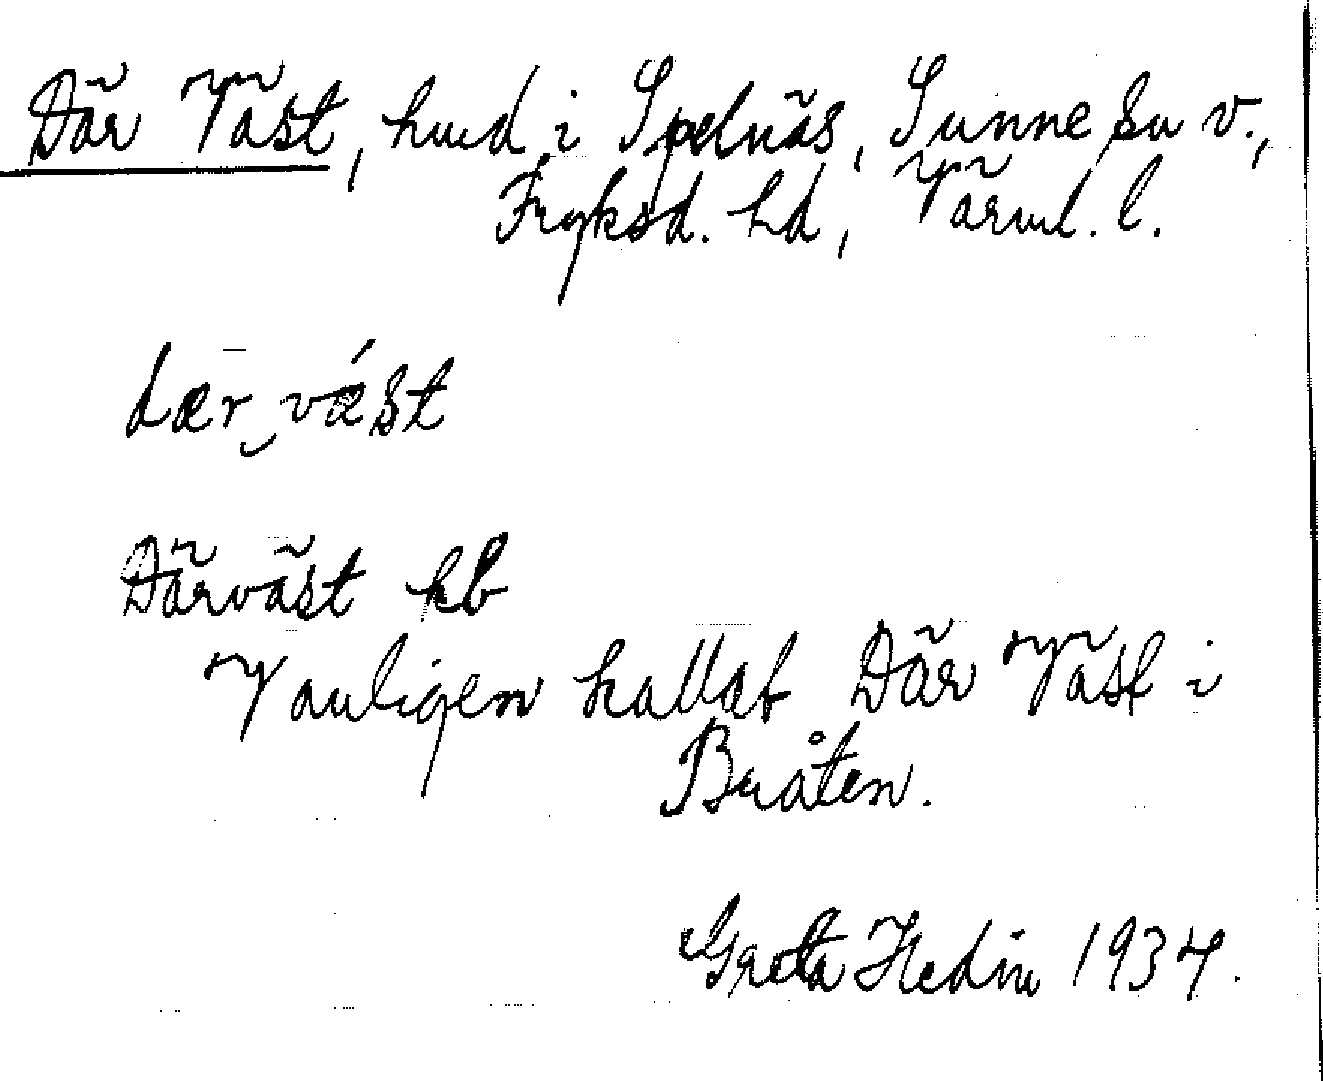 Där Väst, hmd i Spelnäs, Sunne sn v.,
Fryksd. hd, Värml. l.
dær‿vǽst
Därväst kb
Vanligen kallat Där Väst i
Bråten.
Greta Hedin 1934.